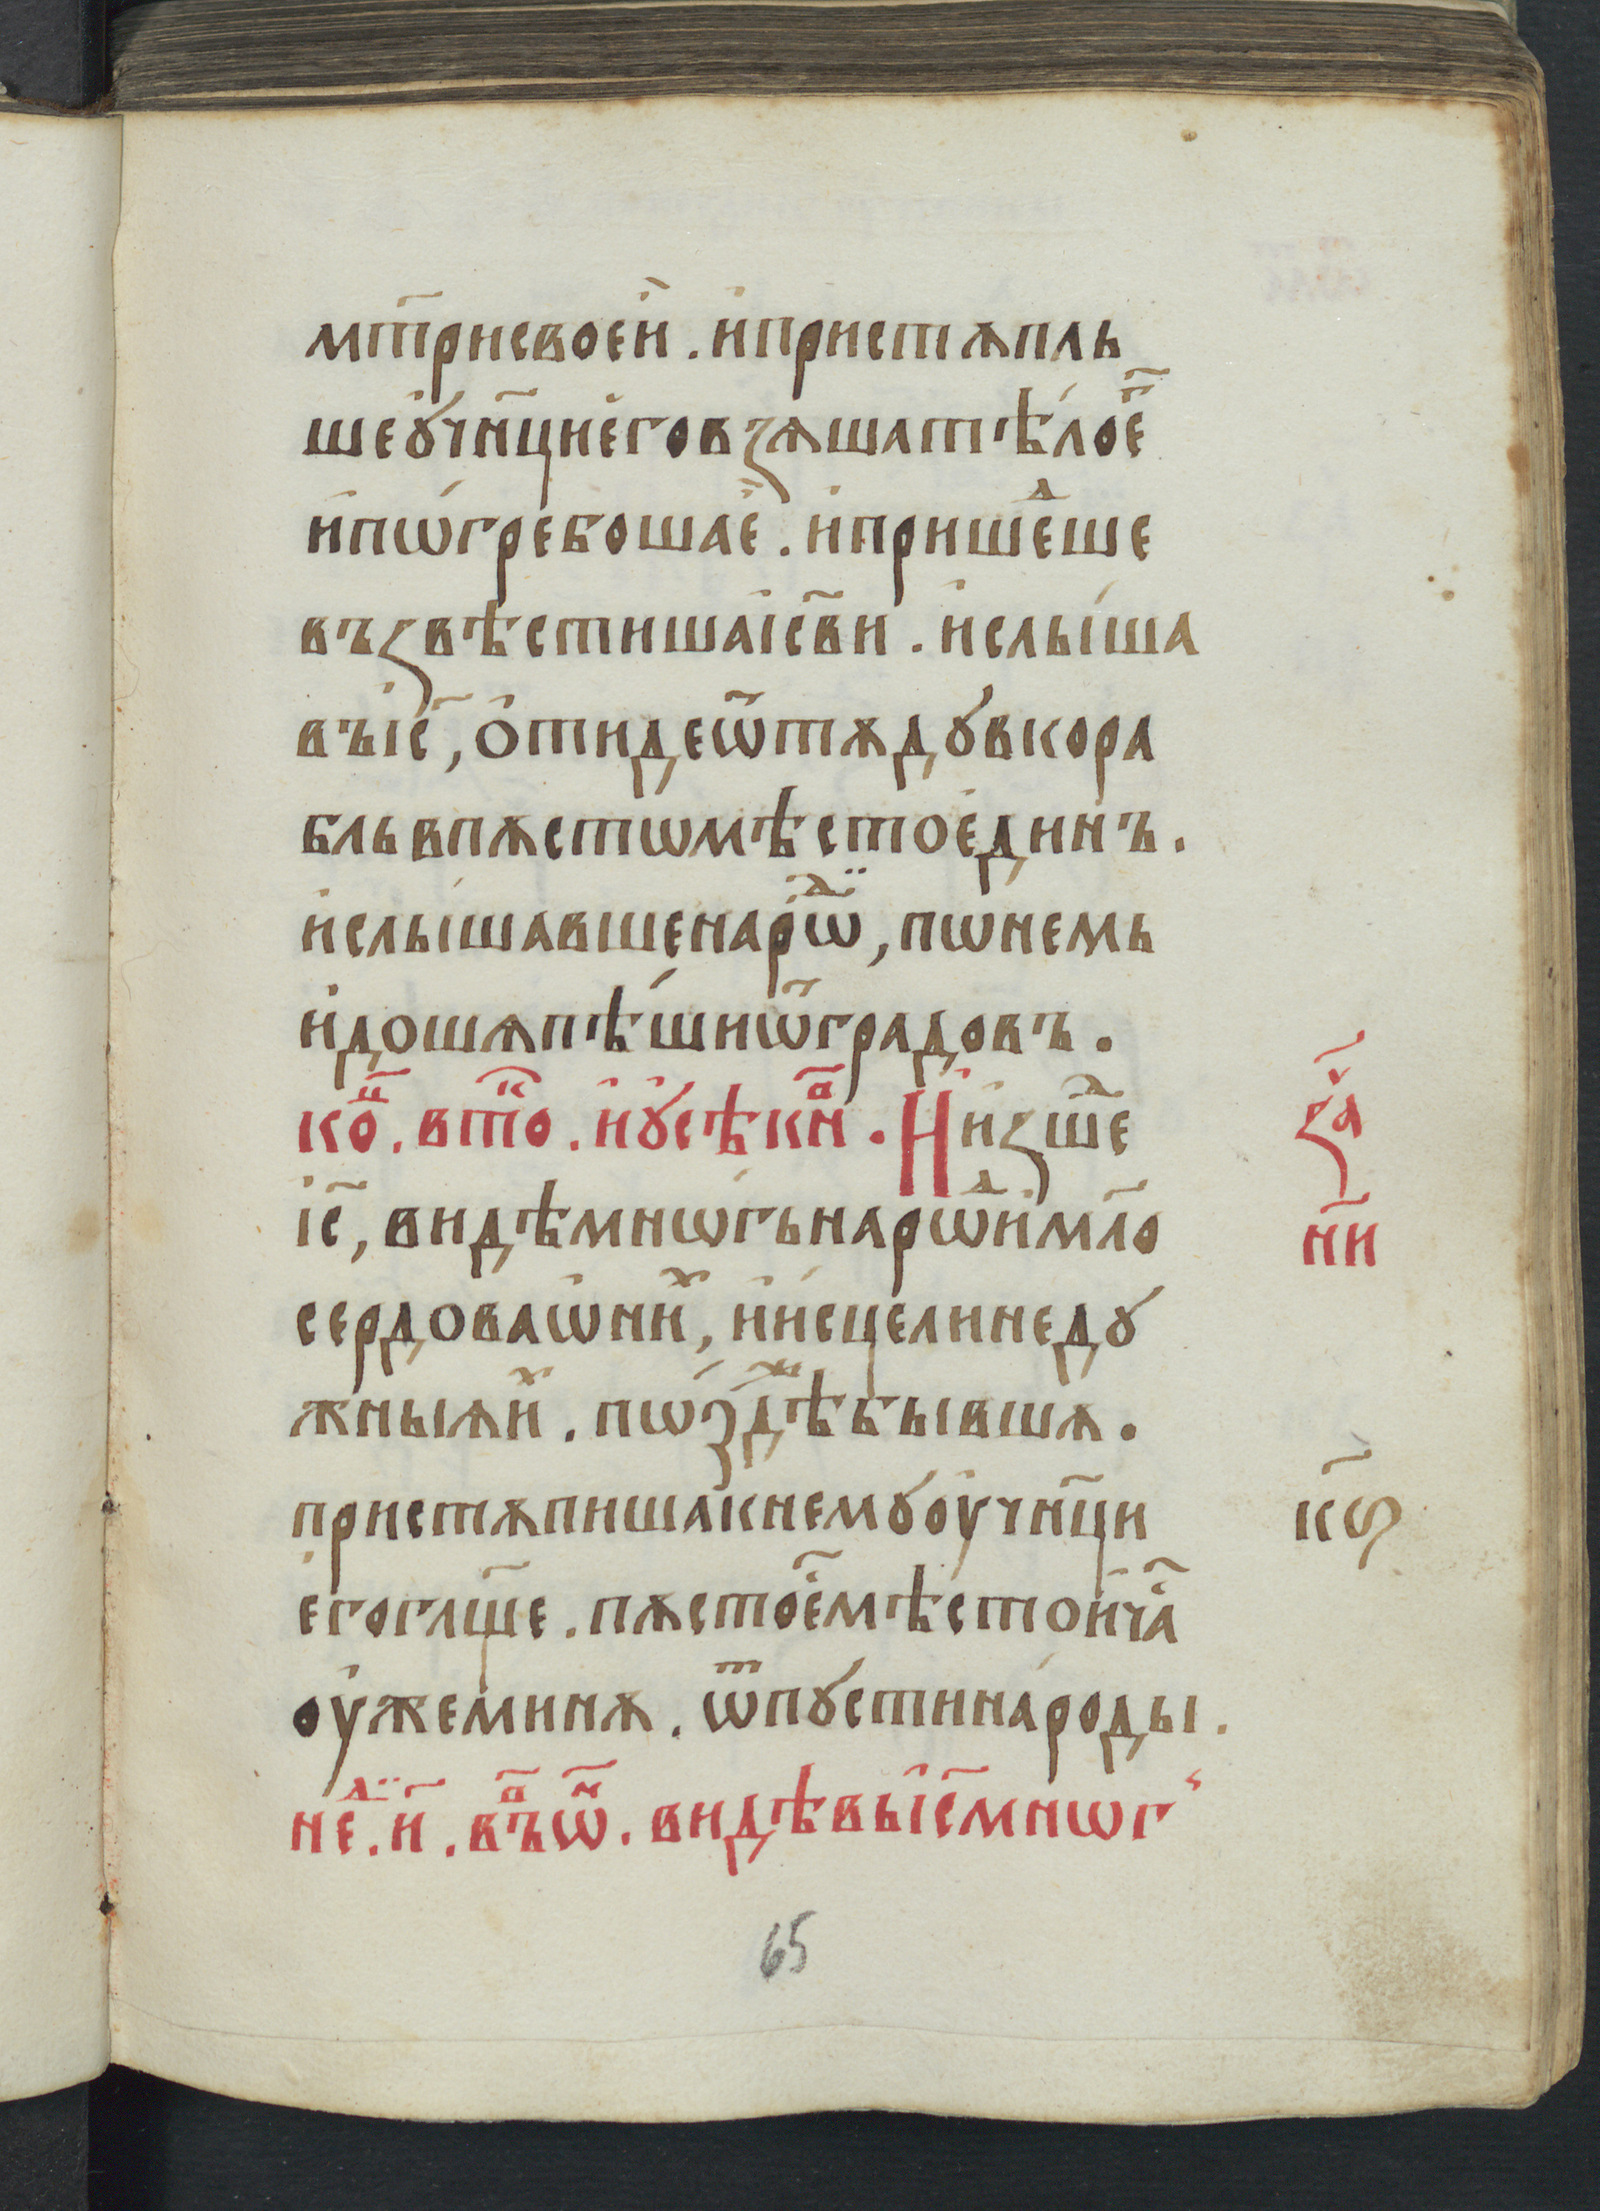 мт҃рисвоеи҆ . и҆пристѫпль
шеꙋ҆чн҃циегового взѧшатѣ́лоє҃
и҆пѡ́гребошаѐ . и҆пришеⷣше
въꙁвѣстишаі҆с҃ви . и҆слы́ша
въі҆с҃, ѻ҆тидеѿтѫдꙋвкора
бльвпѫстѡмѣстоединъ .
и҆слы́шавшенарѡⷣ, пѡнемь
и҆дошѫпѣ́шиѿградовъ .
коⷰ҇ . втоⷦ҇ . и҆ꙋ҆сѣкнⷪ҇ . Ни҆ꙁшеⷣ
і҆с҃, видѣмнѡ́гьнарѡⷣи҆мл҃о
сердоваѡ҆ниⷯ, и҆и҆сцелинедꙋ
жныѧиⷯ . пѡ́ꙁⷤдѣбывшѫ .
пристѫпишакнемꙋоу҆чн҃ци
егогл҃ще . пѫстое҆́мѣстои҆ча҃
оу҆жеминѫ . ѿпꙋстина́роды .
неⷣ . и҃ . въⷪ҇ѿⷩ҇ . видѣвьі҆с҃мнѡг
ꙁа҃
н҃и
кѕ҃
65